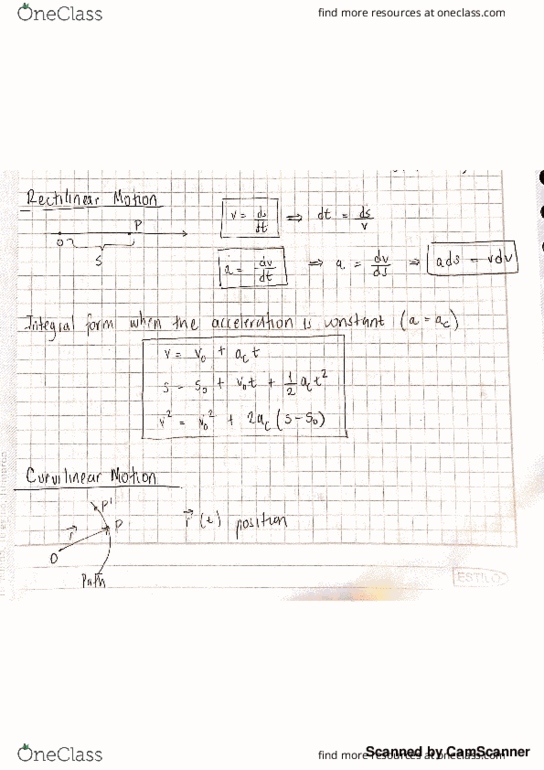 OneClass
find more resources at oneclass.com
Rectilinear Motion
v = ds/dt ⇒ dt = ds/v
O P
S
a = dv/dt ⇒ a = dv/ds ⇒ ads = vdv
Integral form when the acceleration is constant (a = ac)
v = v₀ + ac t
s = s₀ + v₀t + 1/2 ac t²
v² = v₀² + 2ac (s-s₀)
Curvilinear Motion
P'
P
r⃗
O
Path
r⃗ (t) position
ESTILO
OneClass
find more resources at oneclass.com
Scanned by CamScanner